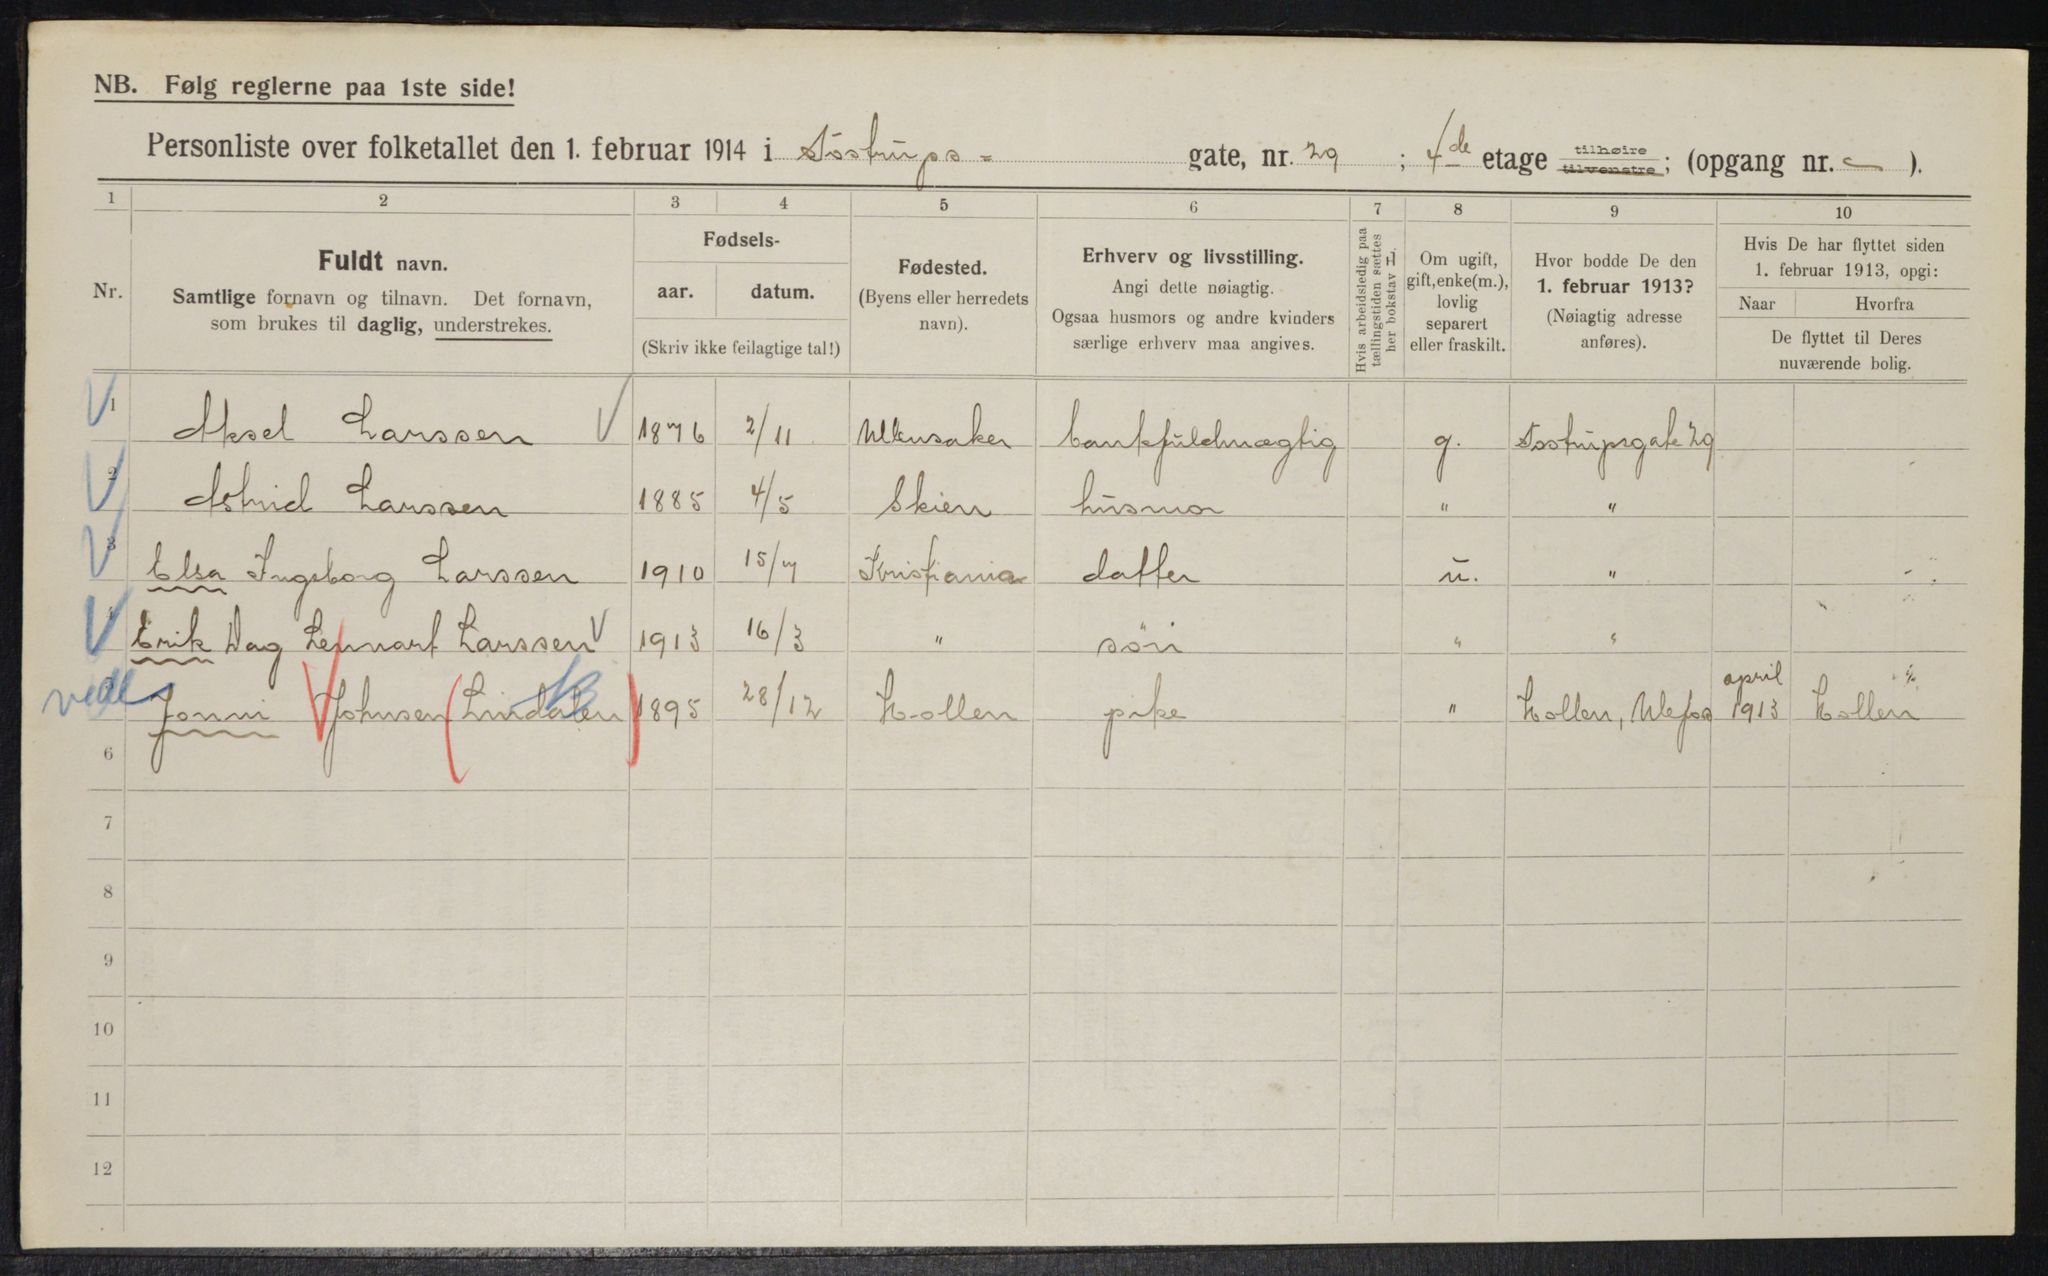 NB. Følg reglerne paa 1ste side!
Personliste over folketallet den 1. februar 1914 i Tostrups- gate, nr. 29 ; 4de etage tilhøire tilvenstre; (opgang nr. – ).
1 2 3 4 5 6 7 8 9 10
Nr.
Fuldt navn.
Samtlige fornavn og tilnavn. Det fornavn,
som brukes til daglig, understrekes.
Fødsels-
aar. datum.
(Skriv ikke feilagtige tal!)
Fødested.
(Byens eller herredets
navn).
Erhverv og livsstilling.
Angi dette nøiagtig.
Ogsaa husmors og andre kvinders
særlige erhverv maa angives.
Hvis arbeidsledig paa
tællingstiden sættes
her bokstav L.
Om ugift,
gift, enke(m.),
lovlig
separert
eller fraskilt.
Hvor bodde De den
1. februar 1913?
(Nøiagtig adresse
anføres).
Hvis De har flyttet siden
1. februar 1913, opgi:
Naar Hvorfra
De flyttet til Deres
nuværende bolig.
1 Aksel Larssen 1876 2/11 Ullensaker bankfuldmægtig g. Tostrupsgate 29
2 Astrid Larssen 1885 4/5 Skien husmor " "
3 Elsa Ingeborg Larssen 1910 15/7 Kristiania datter u. "
4 Erik Dag Lennart Larssen 1913 16/3 " søn " "
Jonni Johnsen (Lindalen) 1895 28/12 Hollen pike " Hollen, Ulefos april 1913 Hollen
6
7
8
9
10
11
12